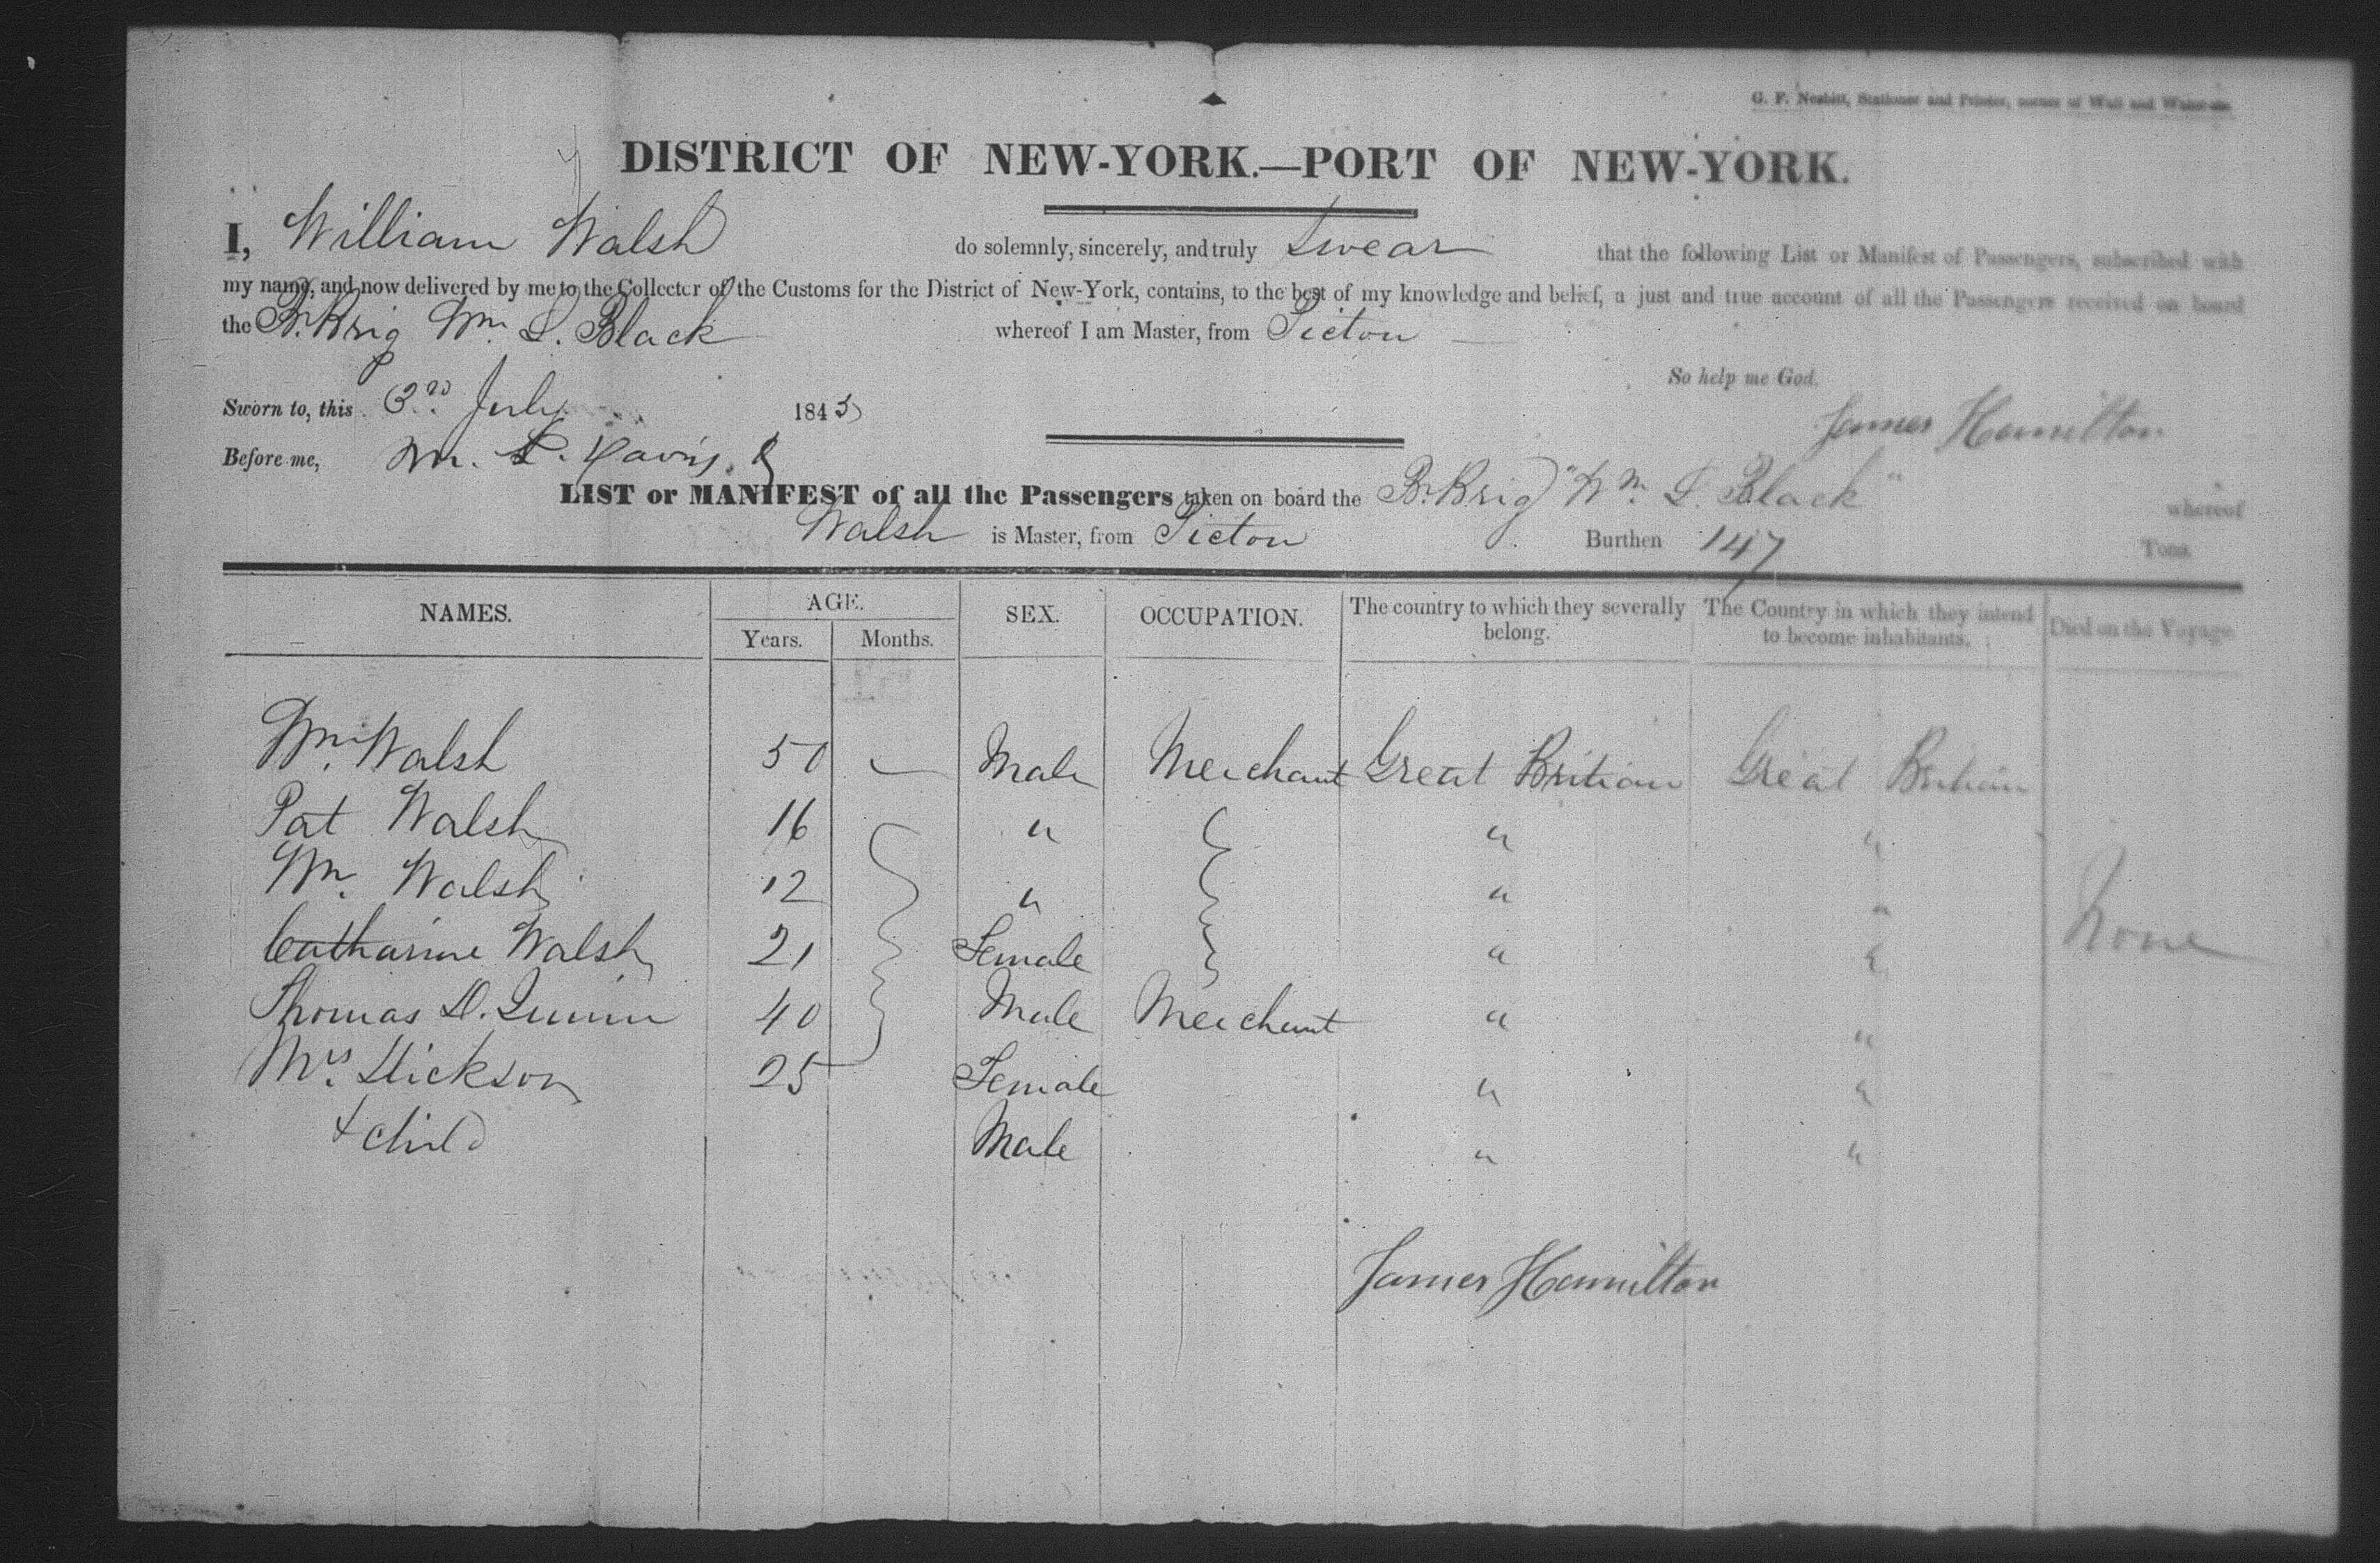 G. F. Nesbitt, Stationer and Printer, corner of Wall and Water-sts.
DISTRICT OF NEW-YORK.—PORT OF NEW-YORK.
I, William Walsh do solemnly, sincerely, and truly Swear that the following List or Manifest of Passengers, subscribed with
my name, and now delivered by me to the Collector of the Customs for the District of New-York, contains, to the best of my knowledge and belief, a just and true account of all the Passengers received on board
the Br. Brig Wm. L. Black whereof I am Master, from Pictou
So help me God.
Sworn to, this 3rd July 1845
James Hamilton
Before me, M. L. Davis
LIST or MANIFEST of all the Passengers taken on board the Br Brig "Wm L. Black" whereof
Walsh is Master, from Pictou Burthen 147 Tons.
NAMES. AGE. SEX. OCCUPATION. The country to which they severally belong. The Country in which they intend to become inhabitants. Died on the Voyage.
Years. Months.
Wm. Walsh 50 — Male Merchant Great Britian Great Britian
Pat Walsh 16 " " "
Wm. Walsh 12 " " "
Catharine Walsh 21 Female " " None
Thomas D. Quinn 40 Male Merchant " "
Mrs. Dickson 25 Female " "
+ child Male " "
James Hamilton